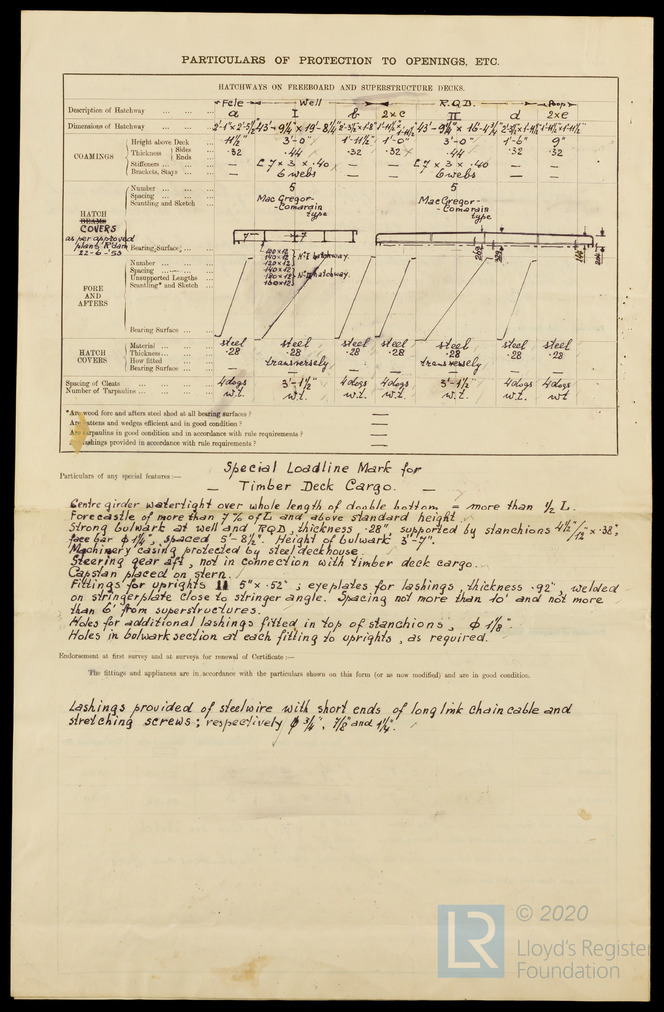 PARTICULARS OF PROTECTION TO OPENINGS, ETC.
HATCHWAYS ON FREEBOARD AND SUPERSTRUCTURE DECKS.
Well R.Q.D. Poop
Description of Hatchway a I b 2xc II d 2xe
Dimensions of Hatchway
COAMINGS
Height above Deck 11½" 3'-0" 1'-11½" 1'-0" 3'-0" 1'-6" 9"
Thickness Sides Ends .32 .44 .32 .32 .44 .32 .32
Stiffeners — L 7 x 3 x .40 — — L 7 x 3 x .40 — —
Brackets, Stays — 6 webs — — 6 webs — —
HATCH BEAMS
COVERS
as per approved
22-6-'53
Number 5 5
Spacing
Scantling and Sketch Mac Gregor- Mac Gregor-
-Comarain -Comarain
type type
Bearing Surface
FORE
AND
AFTERS
Number
Spacing
Unsupported Lengths
Scantling* and Sketch
Nº I hatchway.
Nº II hatchway.
Bearing Surface
HATCH
COVERS
Material steel steel steel steel steel steel steel
Thickness .28 .28 .28 .28 .28 .28 .28
How fitted transversely transversely
Bearing Surface — — — — — — —
Spacing of Cleats 4 dogs 3'-1½" 4 dogs 4 dogs 3'-1½" 4 dogs 4 dogs
Number of Tarpaulins w.t. w.t. w.t. w.t. w.t. w.t. wt
*Are wood fore and afters steel shod at all bearing surfaces? —
Are battens and wedges efficient and in good condition? —
Are tarpaulins in good condition and in accordance with rule requirements? —
Are lashings provided in accordance with rule requirements? —
Particulars of any special features:—
Special Loadline Mark for
— Timber Deck Cargo. —
Centre girder watertight over whole length of double bottom = more than ½ L.
Forecastle of more than 7% of L and above standard height
Strong bulwark at well and RQD, thickness .28", supported by stanchions 4½"/12" x .38",
face bar φ 1¼", spaced 5'-8½". Height of bulwark 3'-7".
Machinery casing protected by steel deckhouse.
Steering gear aft, not in connection with timber deck cargo.
Capstan placed on stern.
Fittings for uprights 5" x .52"; eyeplates for lashings, thickness .92", welded
on stringerplate close to stringer angle. Spacing not more than 10' and not more
than 6' from superstructures.
Holes for additional lashings fitted in top of stanchions, φ 1⅛".
Holes in bulwark section at each fitting to uprights, as required.
Endorsement at first survey and at surveys for renewal of Certificate:—
The fittings and appliances are in accordance with the particulars shown on this form (or as now modified) and are in good condition.
Lashings provided of steelwire with short ends of long link chain cable and
stretching screws; respectively φ ¾", ⅞" and 1¼".
LR
© 2020
Lloyd's Register
Foundation